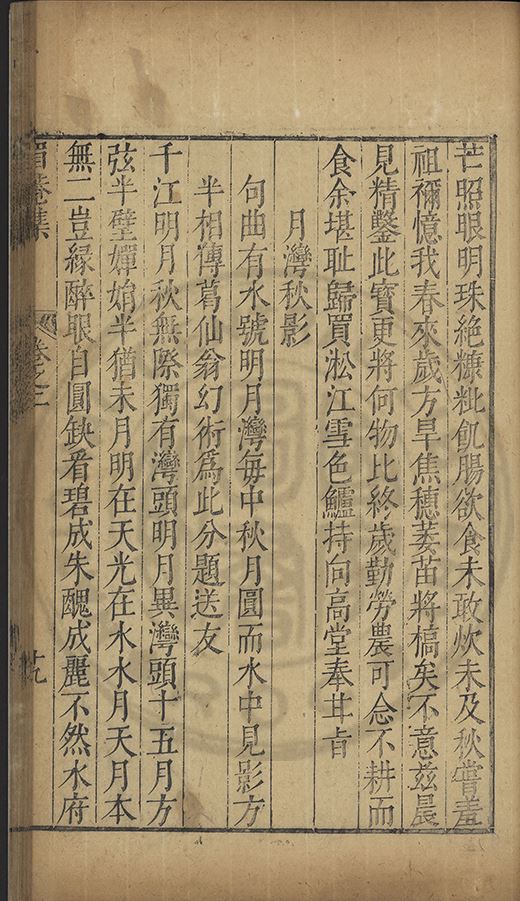 芒照眼明珠絶糠粃飢腸欲食未敢炊未及秋嘗羞
祖禰憶我春來歲方旱焦穗萎苗將槁矣不意兹晨
見精鑿此寳更將何物比終歲勤勞農可念不耕而
食余堪耻歸買淞江雪色鱸持向高堂奉甘旨
月灣秋影
句曲有水號明月灣每中秋月圓而水中見影方
半相傳葛仙翁幻術爲此分題送友
千江明月秋無際獨有灣頭明月異灣頭十五月方
弦半璧嬋娟半猶未月明在天光在水水月天月本
無二豈緣醉眼自圓缺看碧成朱醜成麗不然水府
眉菴集
卷之三
十九